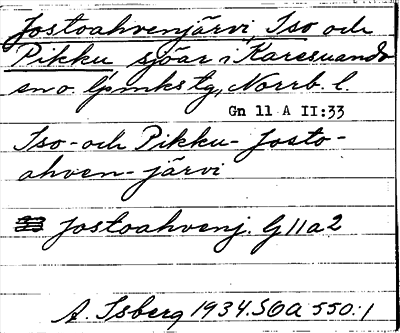 Jostoahvenjärvi, Iso och
Pikku sjöar i Karesuando
sn o. lpmkstg, Norrb. l.
Gn 11 A II:33
Iso- och Pikku- Josto-
ahven-järvi
33 Jostoahvenj. G 11 a 2
A. Isberg 1934. SOA 550:1